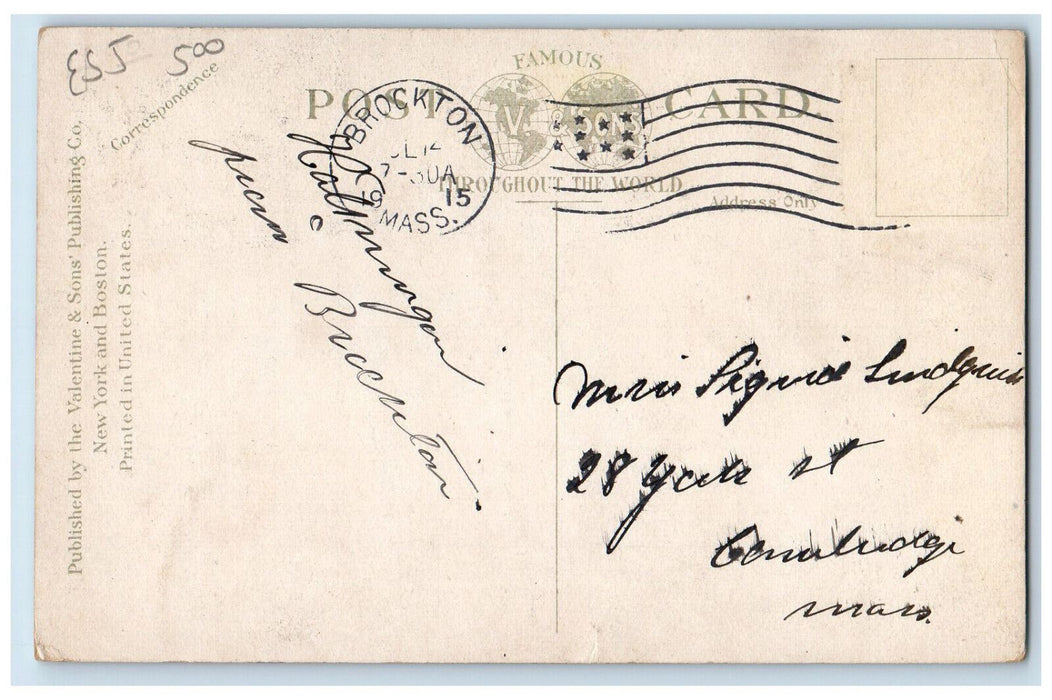 ESJ 500
Correspondence
FAMOUS
POST CARD.
V. & SONS
THROUGHOUT THE WORLD
Address Only
BROCKTON
JL 14
7-30A
1915
MASS.
Published by the Valentine & Sons' Publishing Co,
New York and Boston.
Printed in United States.
from Brockton
Miss Sigrid Lindquist
28 Yale st
Cambridge
Mass.